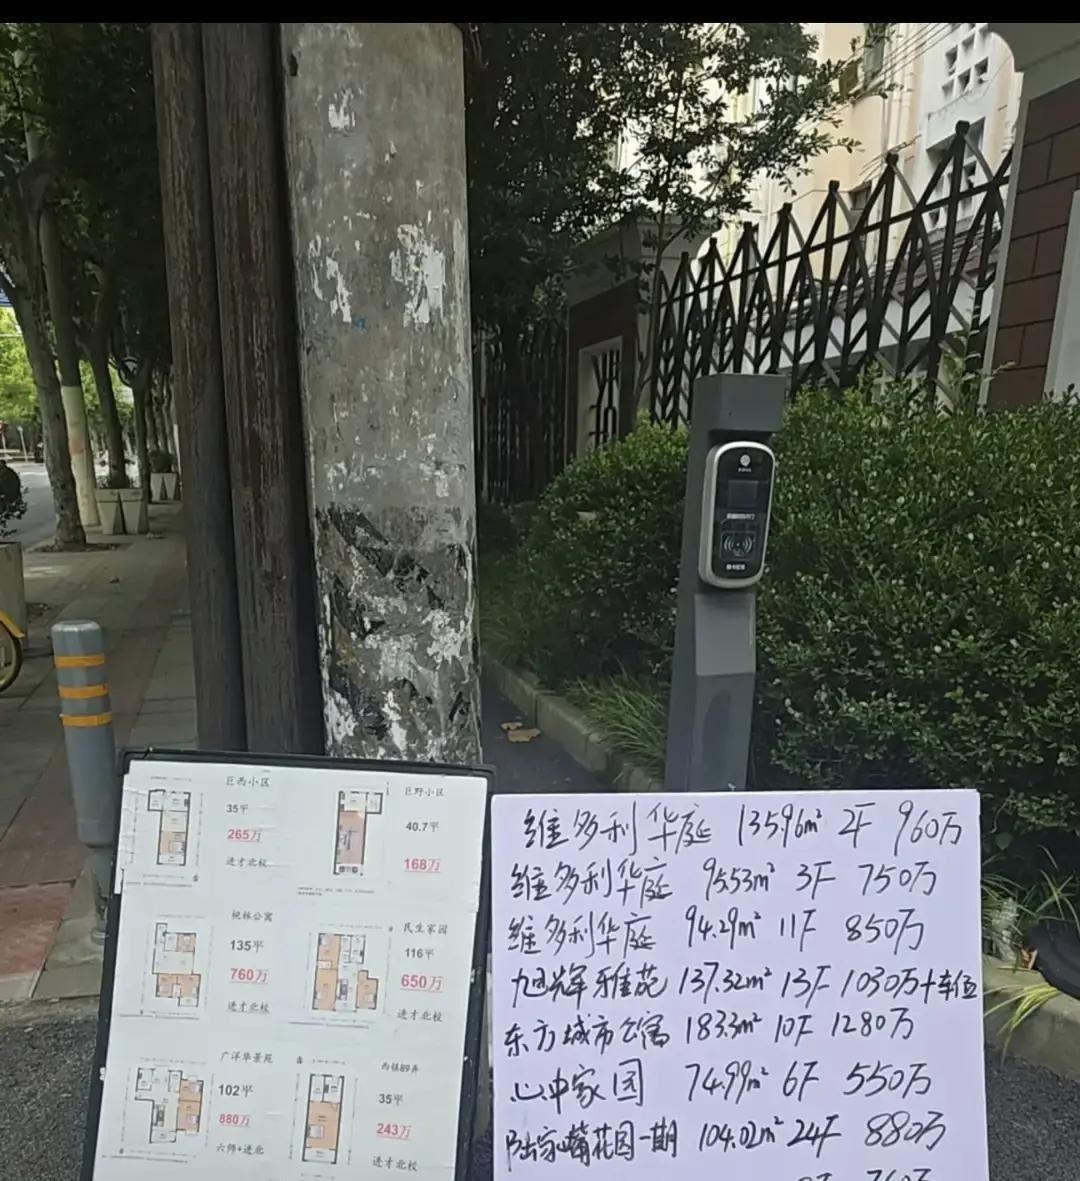 巨西小区
35平
265万
进才北校
巨野小区
40.7平
168万
桃林公寓
135平
760万
进才北校
民生家园
116平
650万
进才北校
广洋华景苑
102平
880万
六师+进北
西镇89弄
35平
243万
进才北校
维多利华庭 135.96m² 2F 960万
维多利华庭 95.53m² 3F 750万
维多利华庭 94.29m² 11F 850万
旭辉雅苑 137.32m² 13F 1030万+车位
东方城市公寓 183.3m² 10F 1280万
心中家园 74.99m² 6F 550万
陆家嘴花园一期 104.02m² 24F 880万